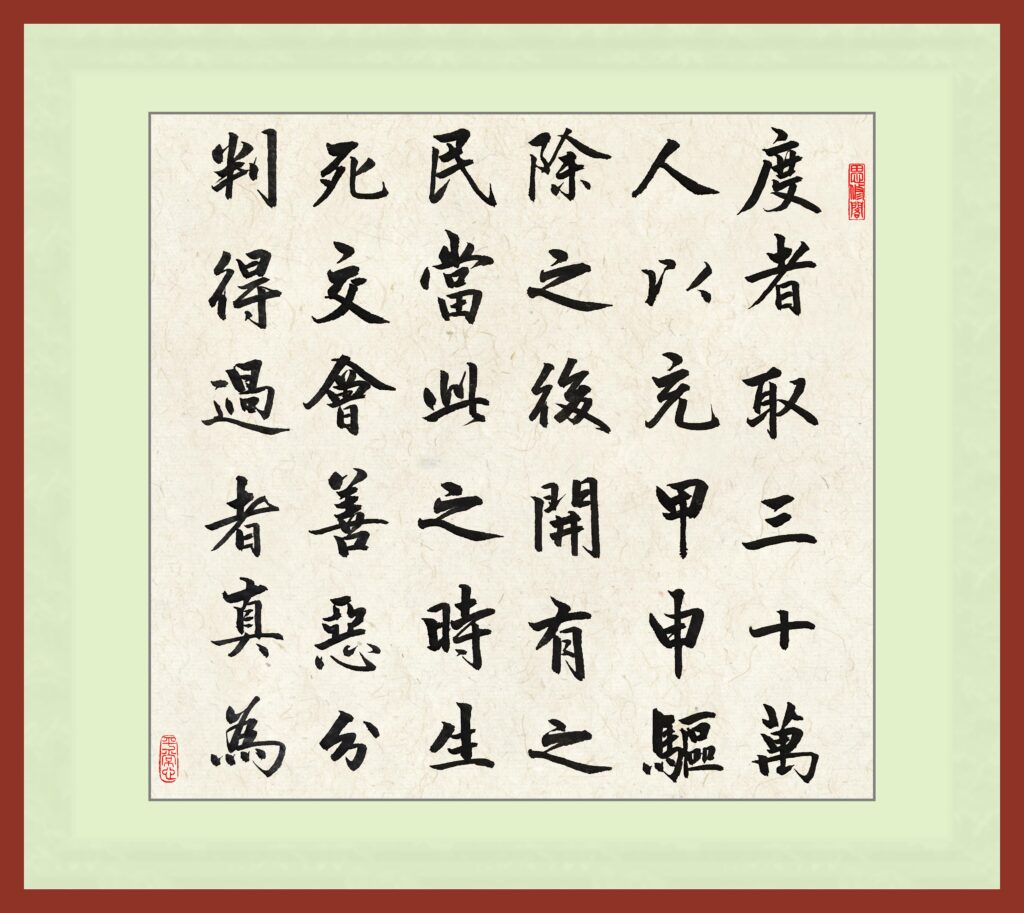 度者取三十萬
人以充甲申驅
除之後開有之
民當此之時生
死交會善惡分
判得過者真為